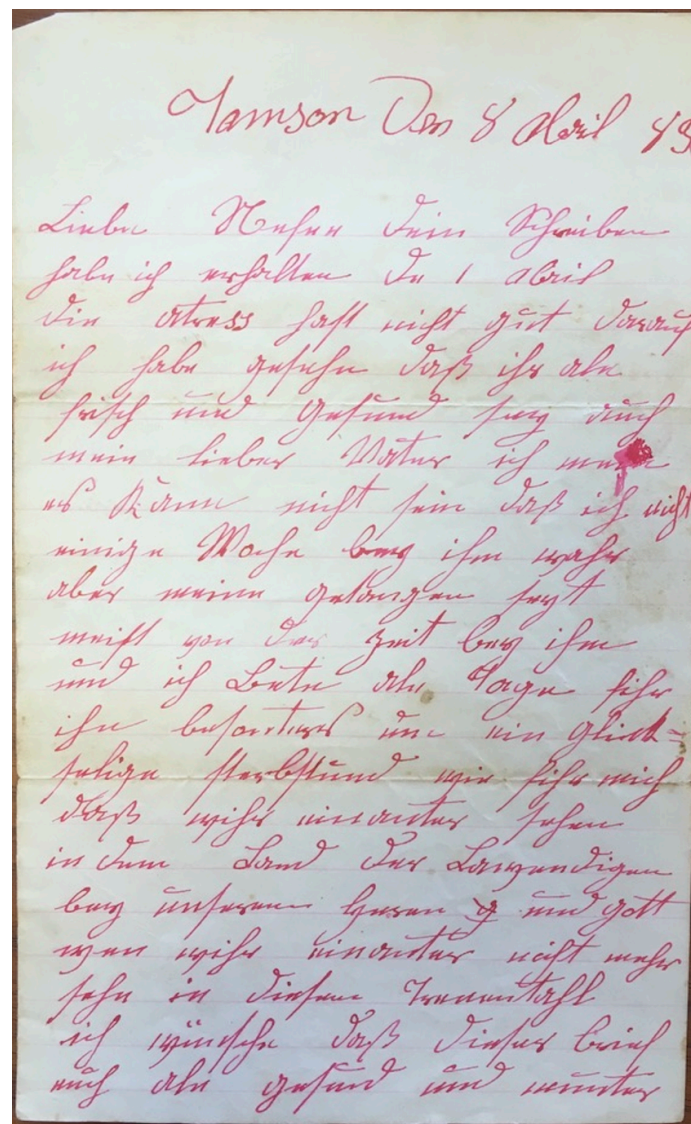 Jamson Den 8 Abril 89
Liebe Nefen dein Schreiben
habe ich erhalten De 1 abril
die atress hast nicht gut darauf
ich habe gesehn daß ihr ale
frisch und Gesund sey auch
mein lieber Vater ich
es kann nicht sein daß ich nicht
einige Woche bey ihm wahr
aber meine gedangen seyt
meist von der zeit bey ihm
und ich Bete ale Tage fihr
ihn besonters um ein glick=
selige sterbstund wie fihr mich
daß wihr einanter sehen
in dem Land der Lawendigen
bey unseren Heren und Gott
wen wihr einanter nicht mehr
sehn in diesem Trenentahl
ich wünsche daß dieser brief
euch ale gesund und munter